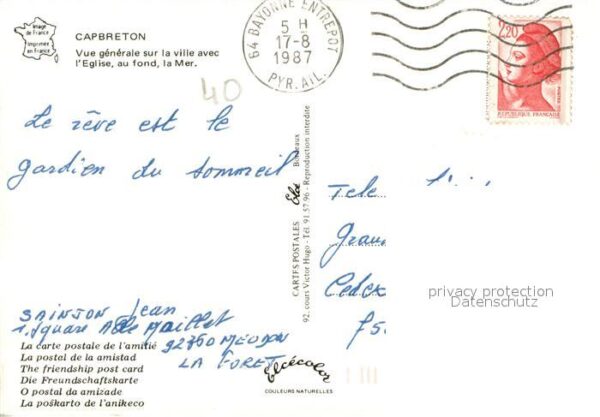 Image
de France
Imprimée
en France
CAPBRETON
Vue générale sur la ville avec
l'Eglise, au fond, la Mer.
64 BAYONNE ENTREPOT
5 H
17-8
1987
PYR. ATL.
2,20
REPUBLIQUE FRANÇAISE
40
Le rêve est le
gardien du sommeil
CARTES POSTALES Elcé Bordeaux
92, cours Victor Hugo - Tél. 91.57.96 - Reproduction interdite
Tele
Gran
Cedex
75
privacy protection
Datenschutz
SAINJON Jean
1. Square Maillet
92360 MEUDON
LA FORET
La carte postale de l'amitié
La postal de la amistad
The friendship post card
Die Freundschaftskarte
O postal da amizade
La poŝkarto de l'anikeco
Elcécolor
COULEURS NATURELLES